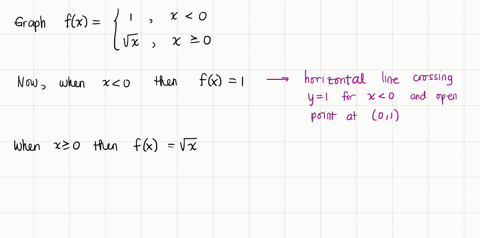 Graph f(x) = { 1 , x < 0
√x , x ≥ 0
Now, when x<0 then f(x) = 1 → horizontal line crossing
y=1 for x<0 and open
point at (0,1)
When x≥0 then f(x) = √x